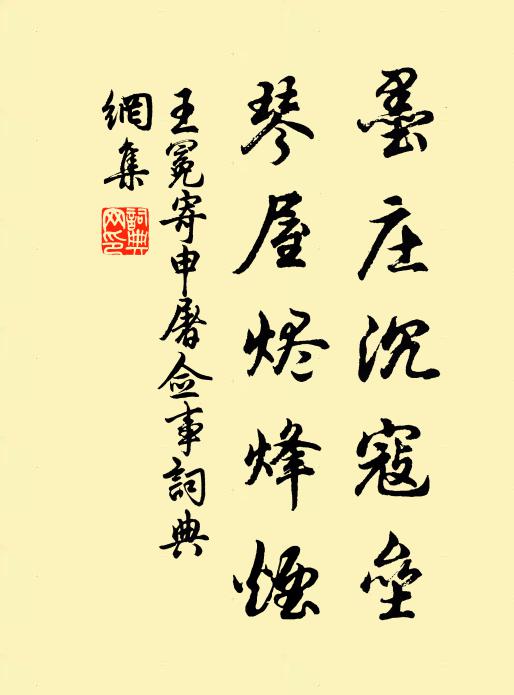 墨庄沉寇垒
琴屋烬烽煙
王冕寄申屠佥事詞典
網集
詞典網印